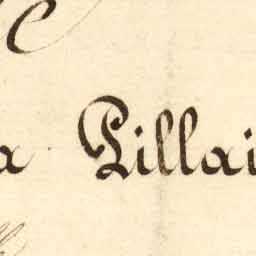 a Pillai